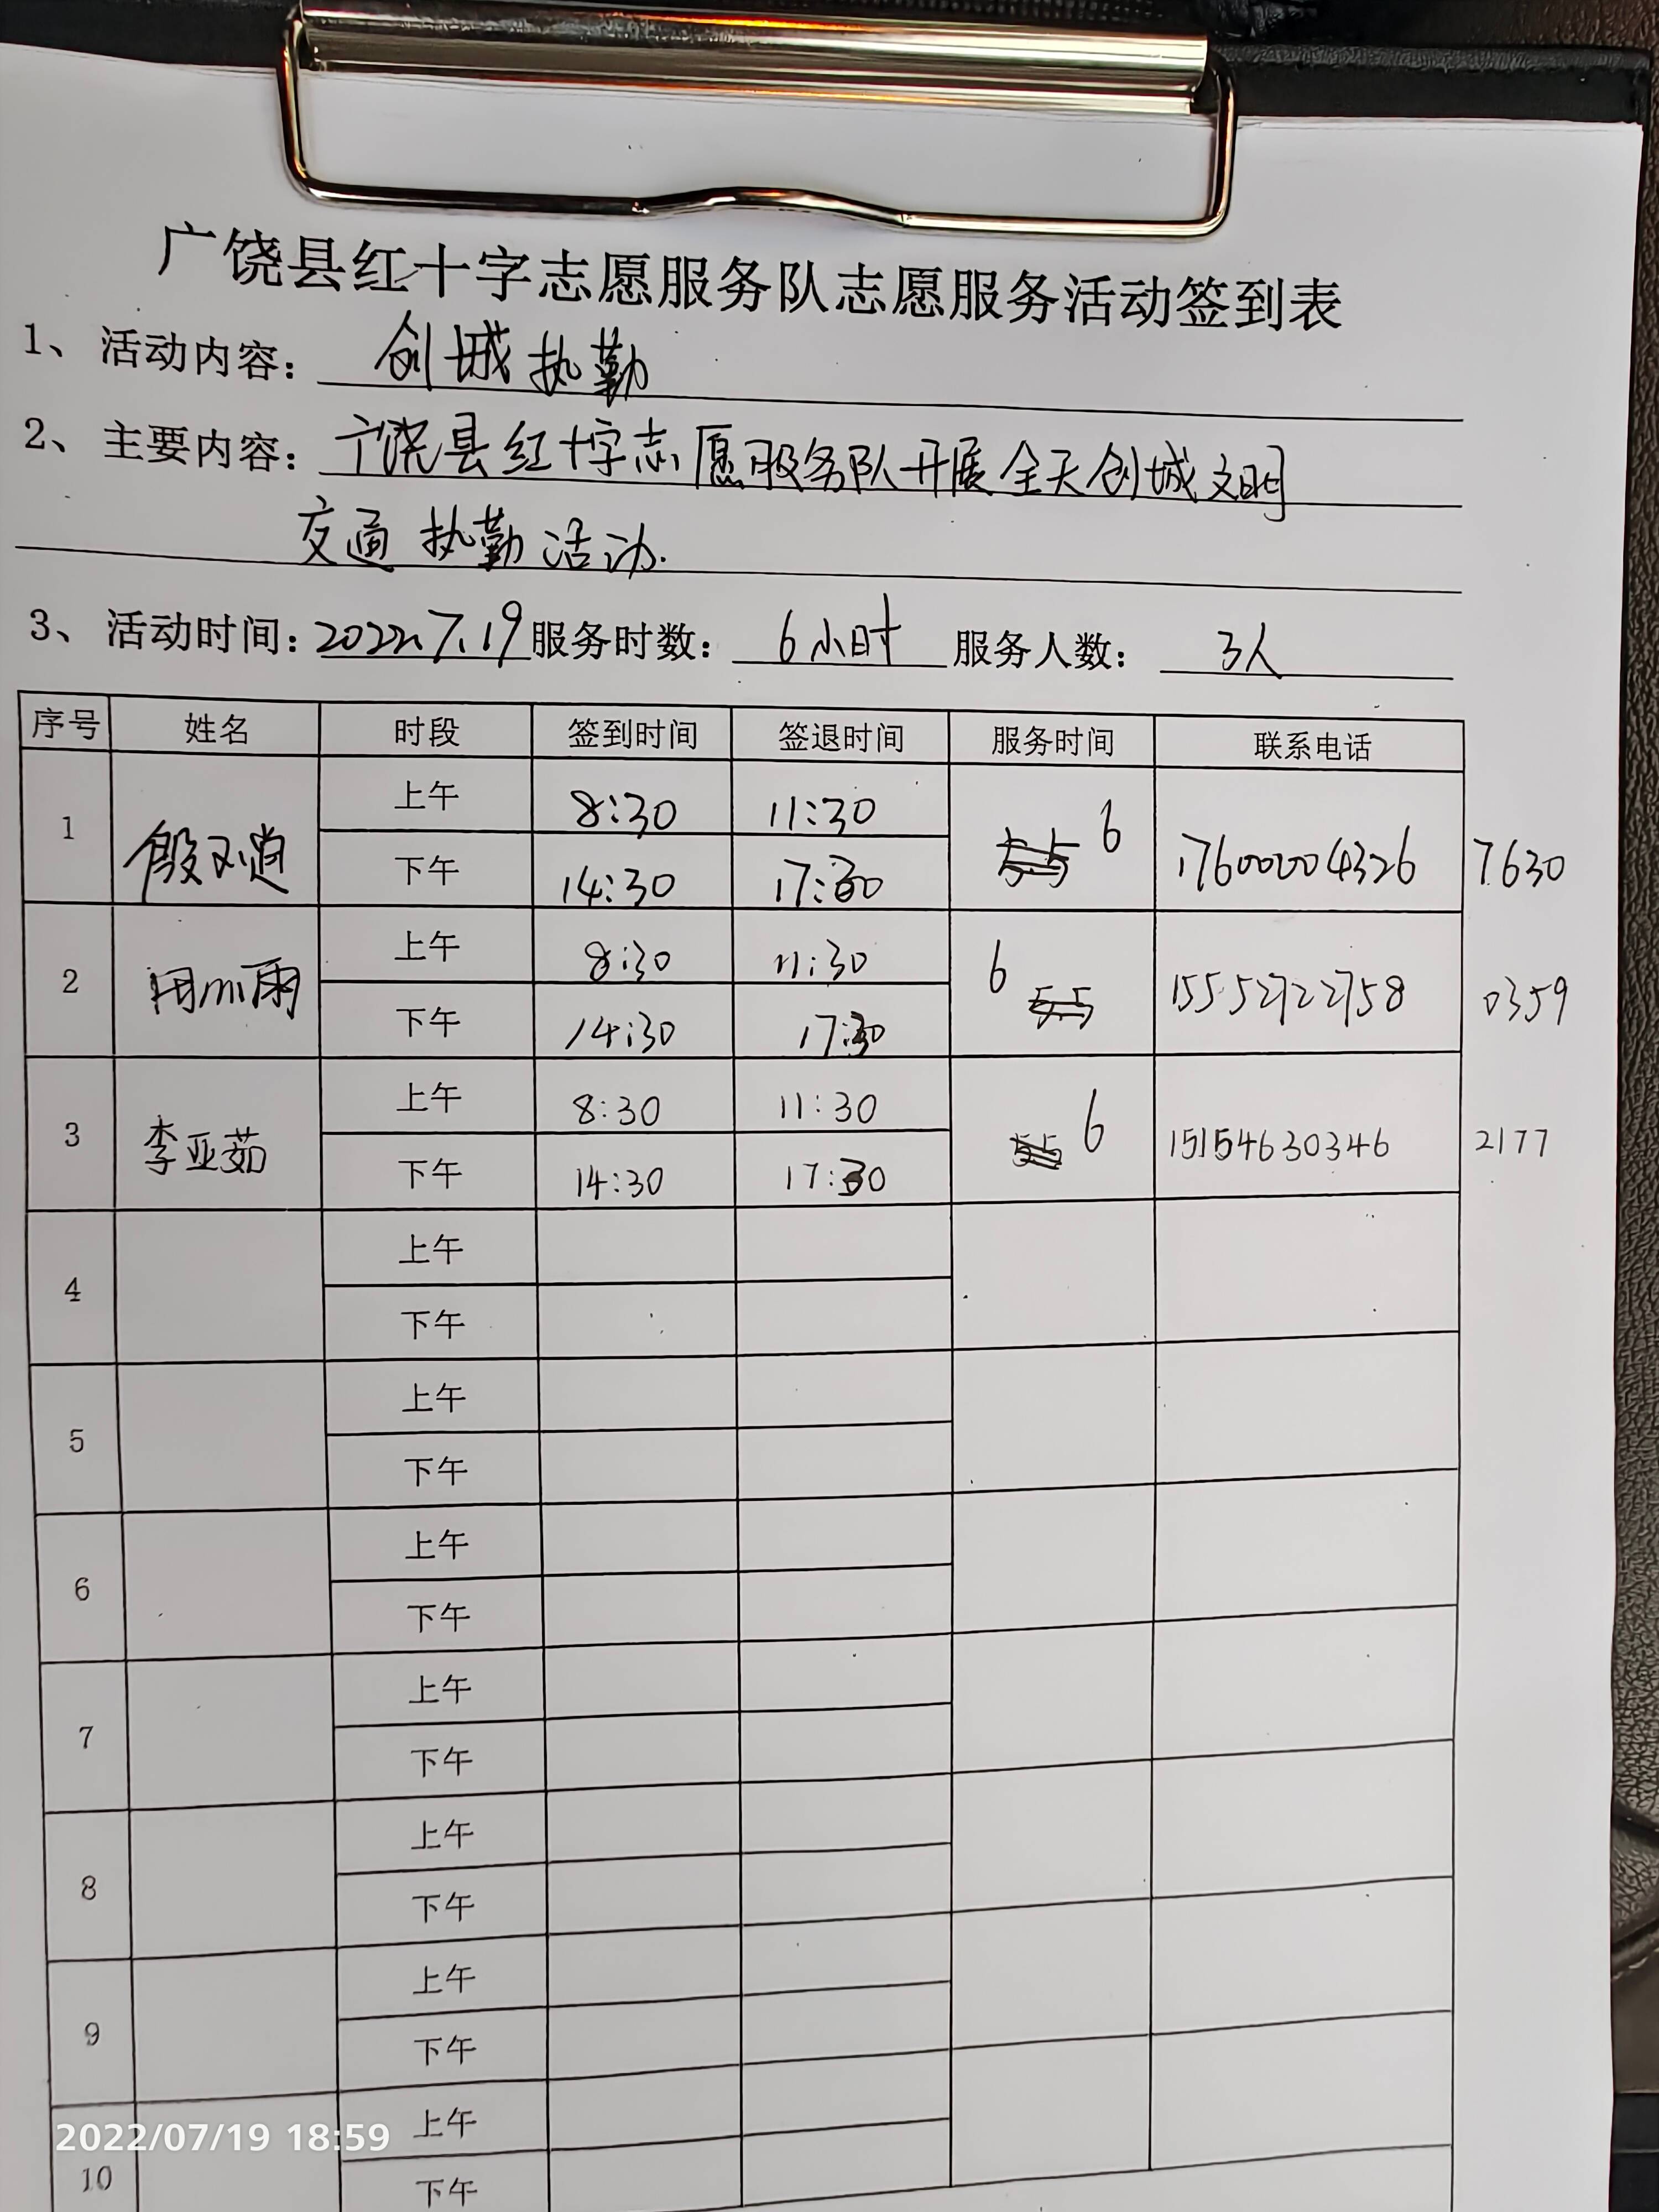 广饶县红十字志愿服务队志愿服务活动签到表
1、活动内容： 创城执勤
2、主要内容： 广饶县红十字志愿服务队开展全天创城文明
交通执勤活动.
3、活动时间：2022.7.19 服务时数： 6小时 服务人数： 3人
序号 姓名 时段 签到时间 签退时间 服务时间 联系电话
1 殷 上午 8:30 11:30 6 17600004326 7630
下午 14:30 17:30
2 雨 上午 8:30 11:30 6 15552722758 0359
下午 14:30 17:30
3 李亚茹 上午 8:30 11:30 6 15154630346 2177
下午 14:30 17:30
4 上午
下午
5 上午
下午
6 上午
下午
7 上午
下午
8 上午
下午
9 上午
下午
10 上午
下午
2022/07/19 18:59